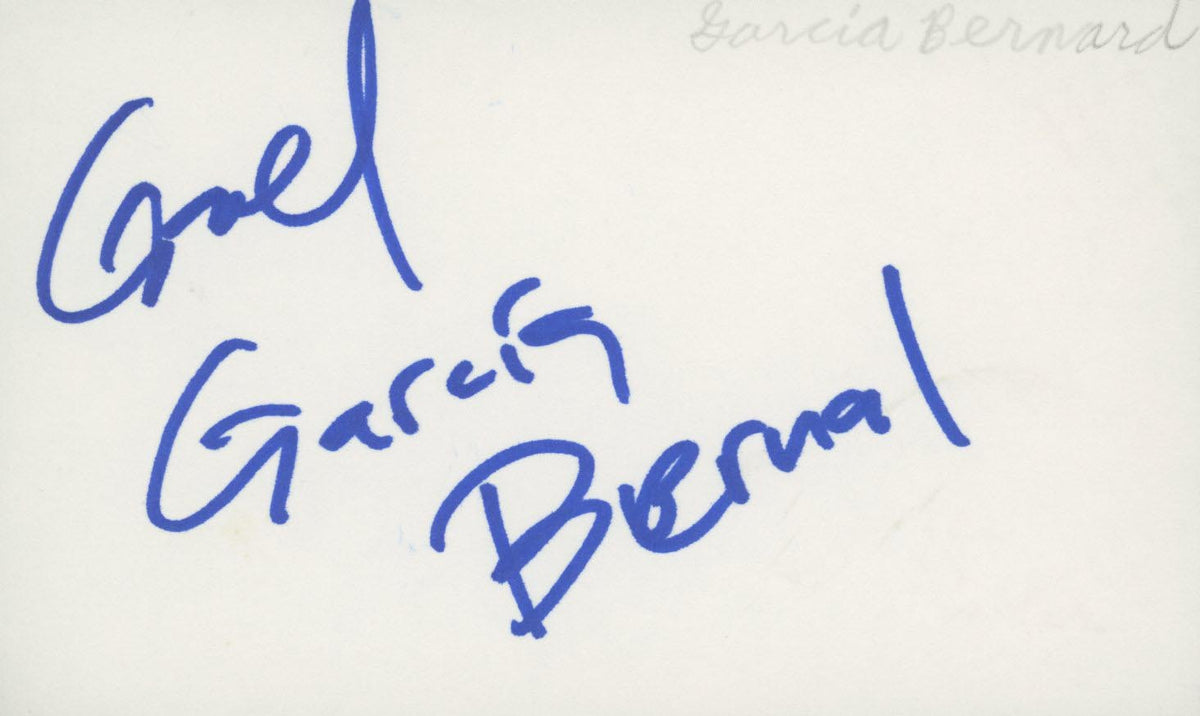 Garcia Bernard
Gael
Garcia
Bernal